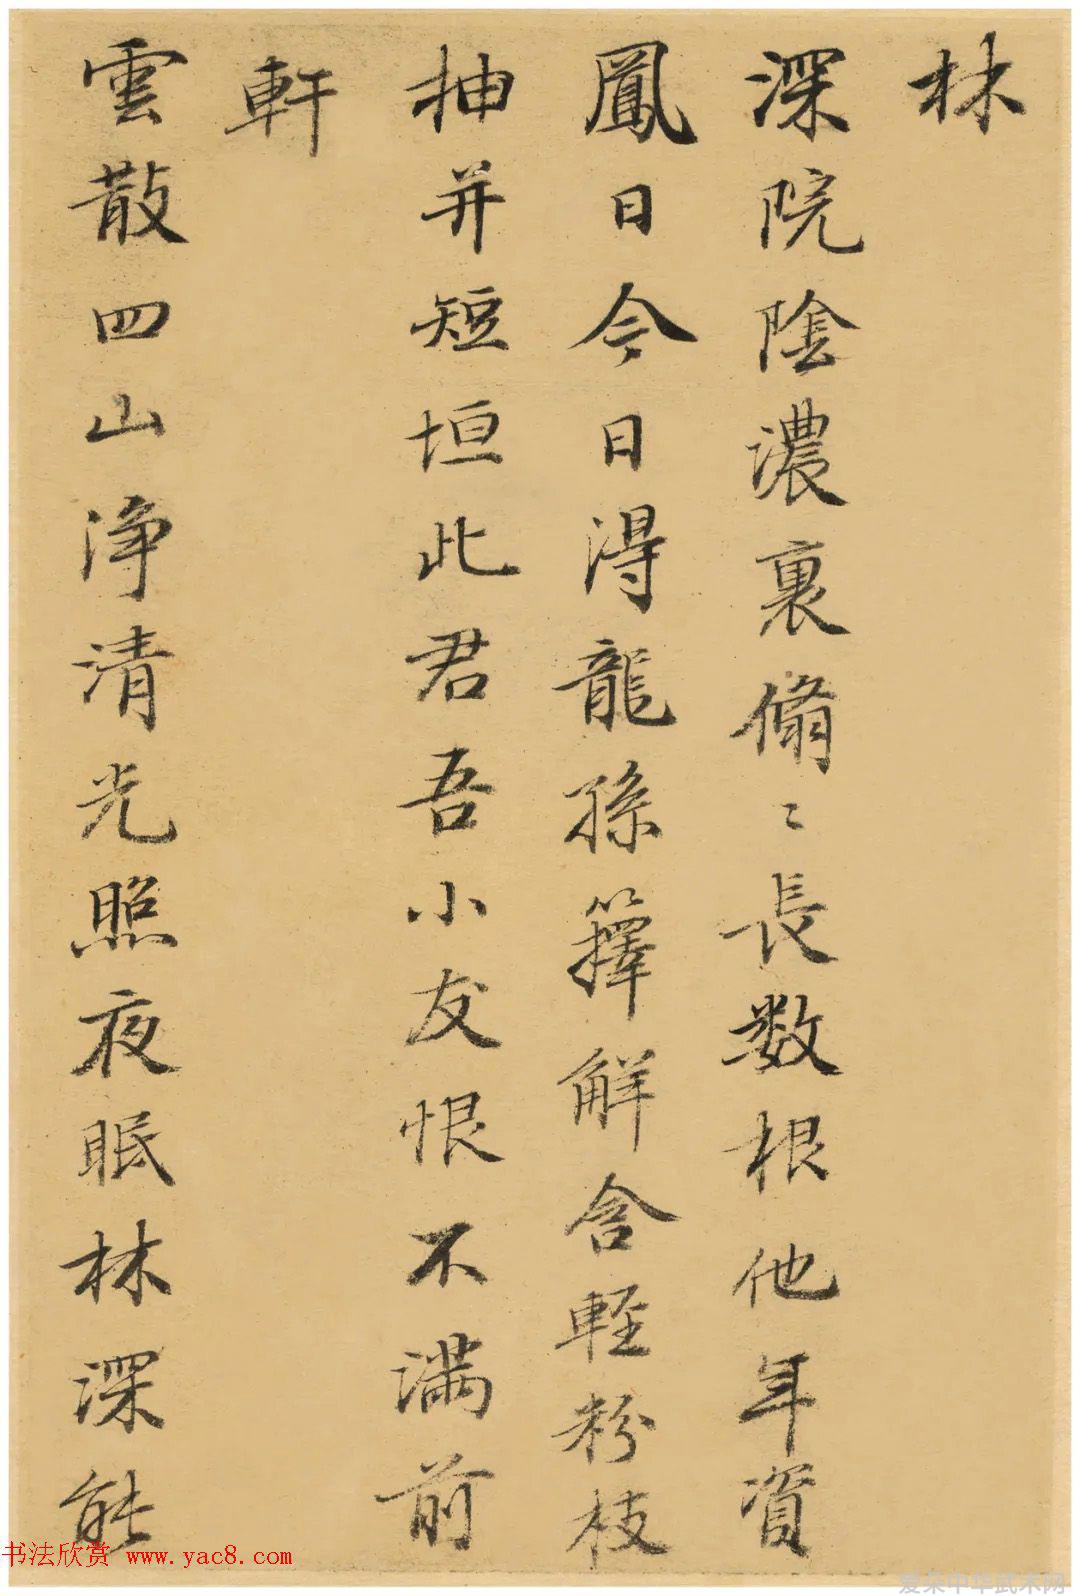 林
深院陰濃裏翛〻長數根他年資
鳳日今日得龍孫籜解含輕粉枝
抽并短垣此君吾小友恨不滿前
軒
雲散四山净清光照夜眠林深能
书法欣赏 www.yac8.com
爱朵中华武术网